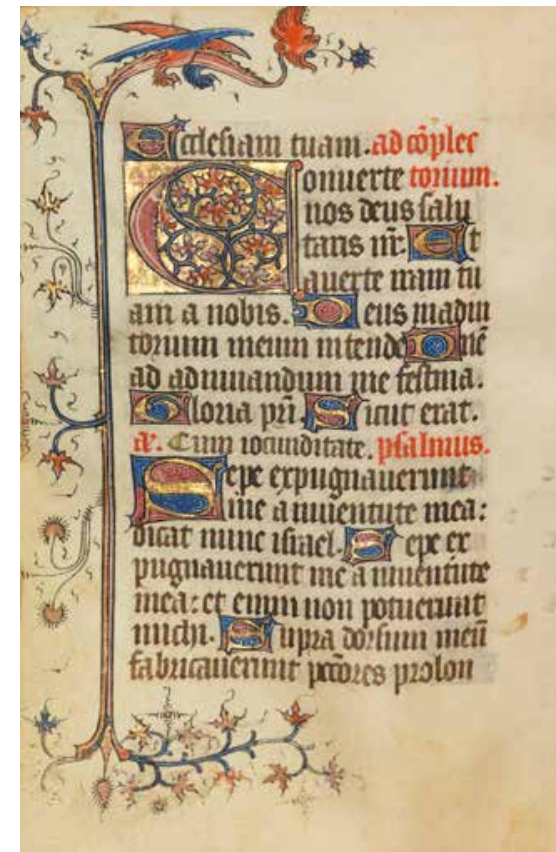 Ecclesiam tuam. ad cõplec
Conuerte torium.
nos deus salu
taris nr̃. Et
auerte iram tu
am a nobis. Deus inadiu
torium meum intende Dñe
ad adiuuandum me festina.
Gloria pr̃i. Sicut erat.
Cum iocunditate. psalmus.
Sepe expugnauerunt
me a iuuentute mea:
dicat nunc israel. Sepe ex
pugnauerunt me a iuuentute
mea: et enim non potuerunt
michi. Supra dorsum meũ
fabricauerunt pctõres prolon